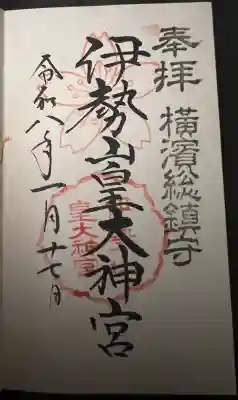 奉拝 横濱總鎮守
伊勢山皇大神宮
令和八年一月十七日